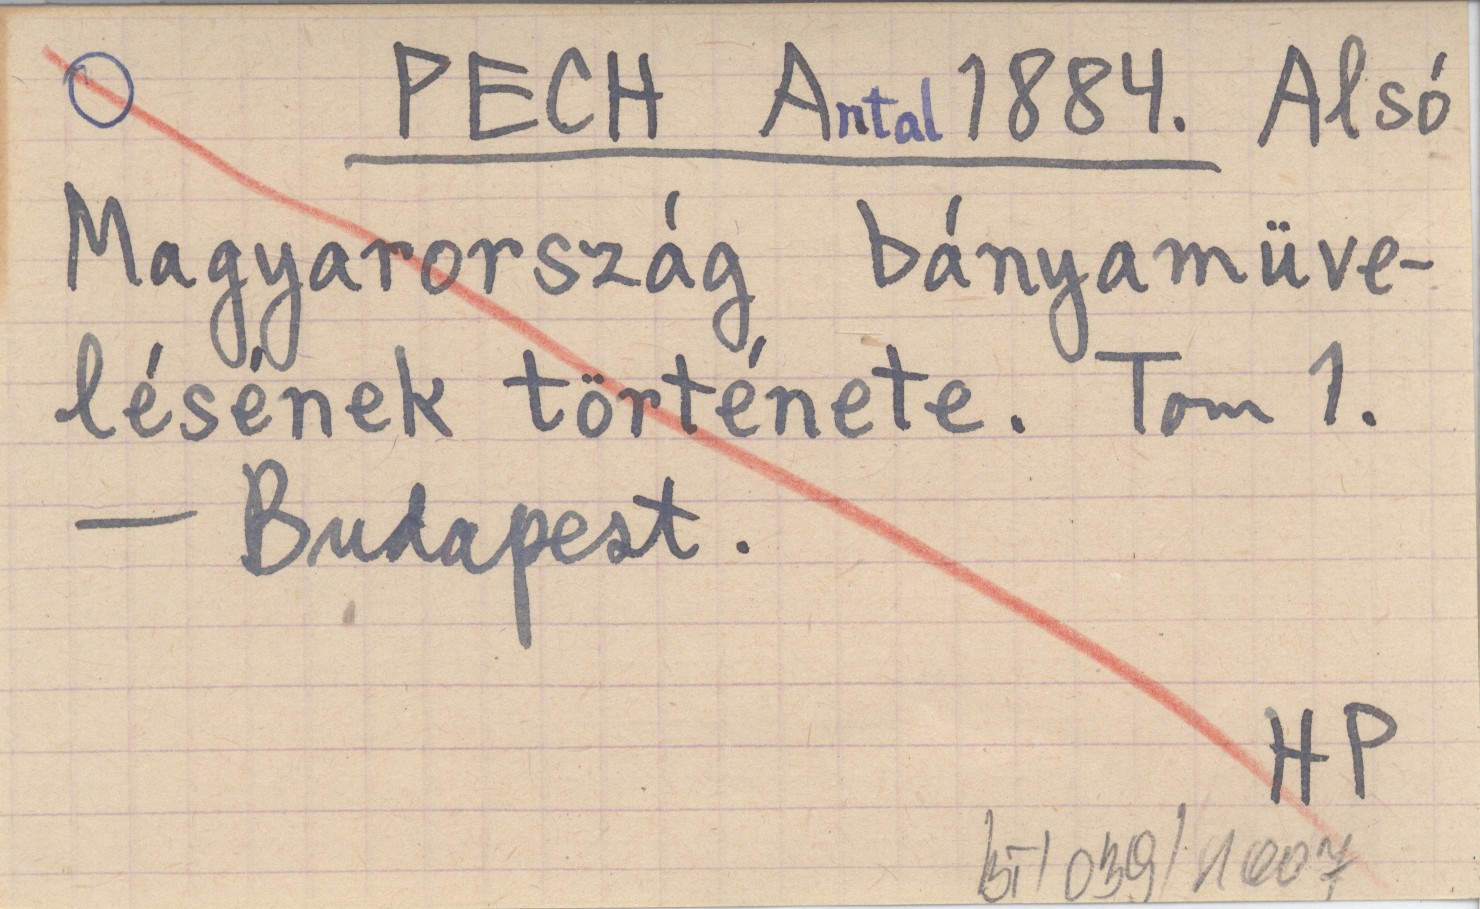 PECH Antal 1884. Alsó
Magyarország bányamüve-
lésének története. Tom 1.
— Budapest.
HP
/039/1007